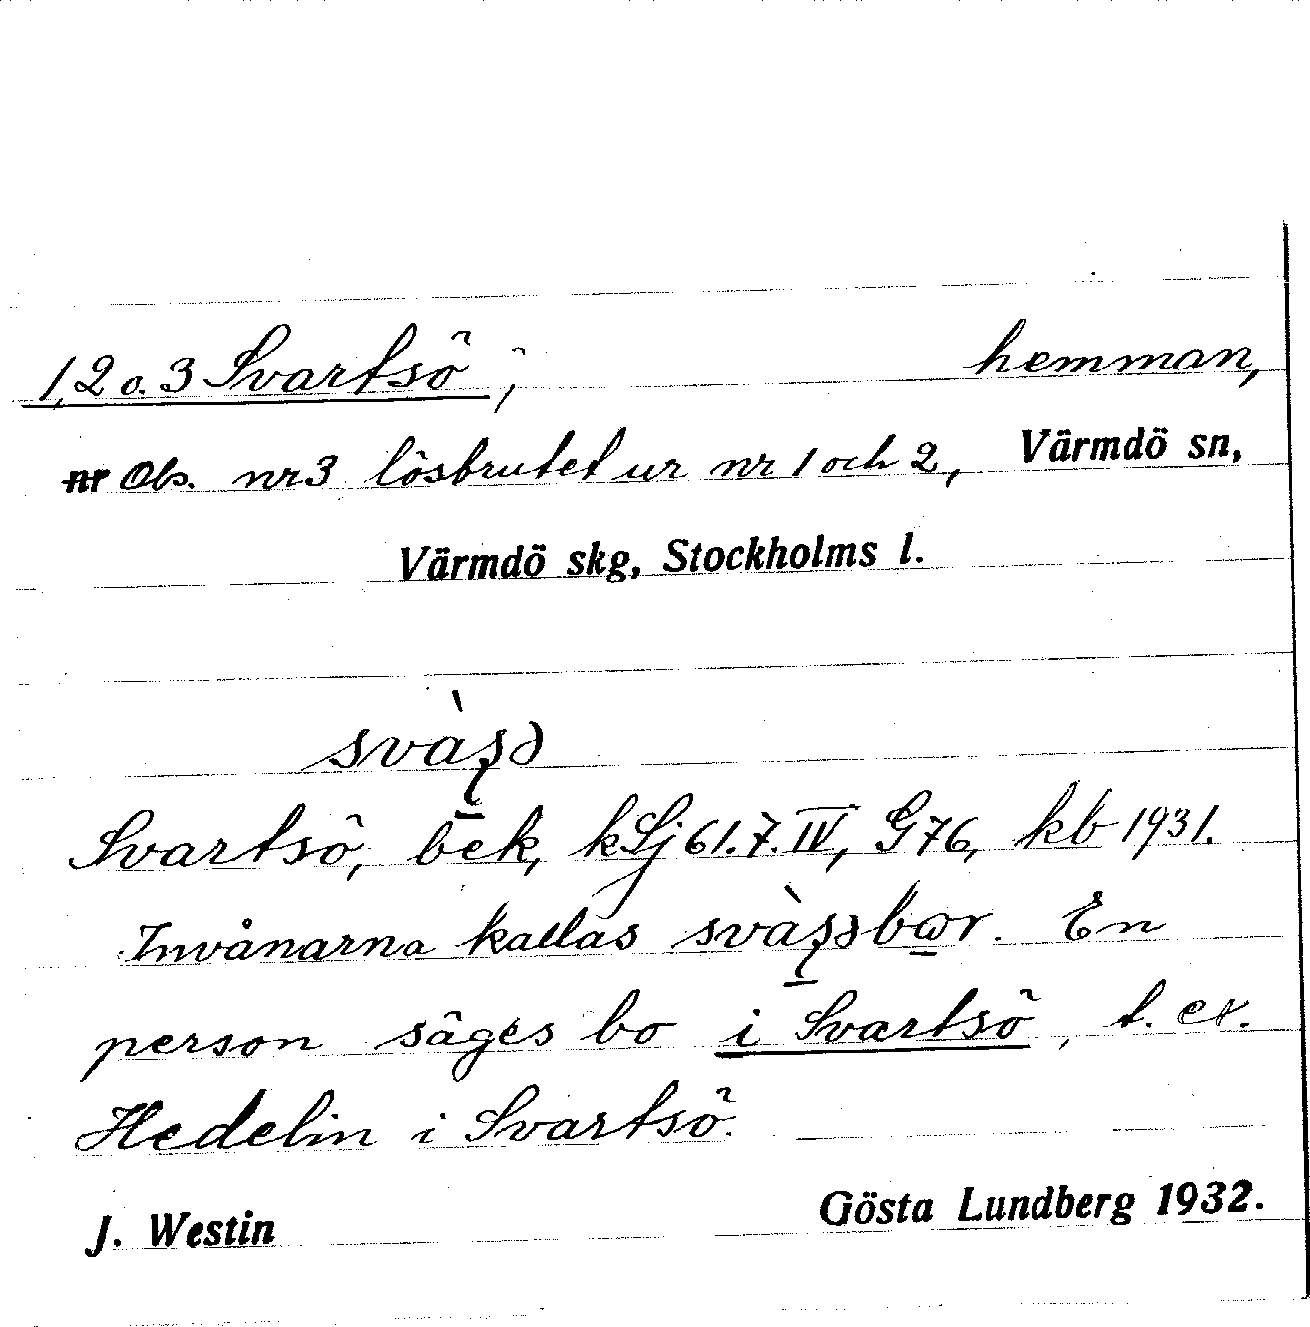 1, 2 o. 3 Svartsö, hemman,
nr Obs. nr 3 lösbrutet ur nr 1 och 2, Värmdö sn,
Värmdö skg, Stockholms l.
Svartsö, bek, kSj 61.7.IV, G76, kb 1931.
Invånarna kallas En
person säges bo i Svartsö, t. ex.
Hedelin i Svartsö.
J. Westin Gösta Lundberg 1932.